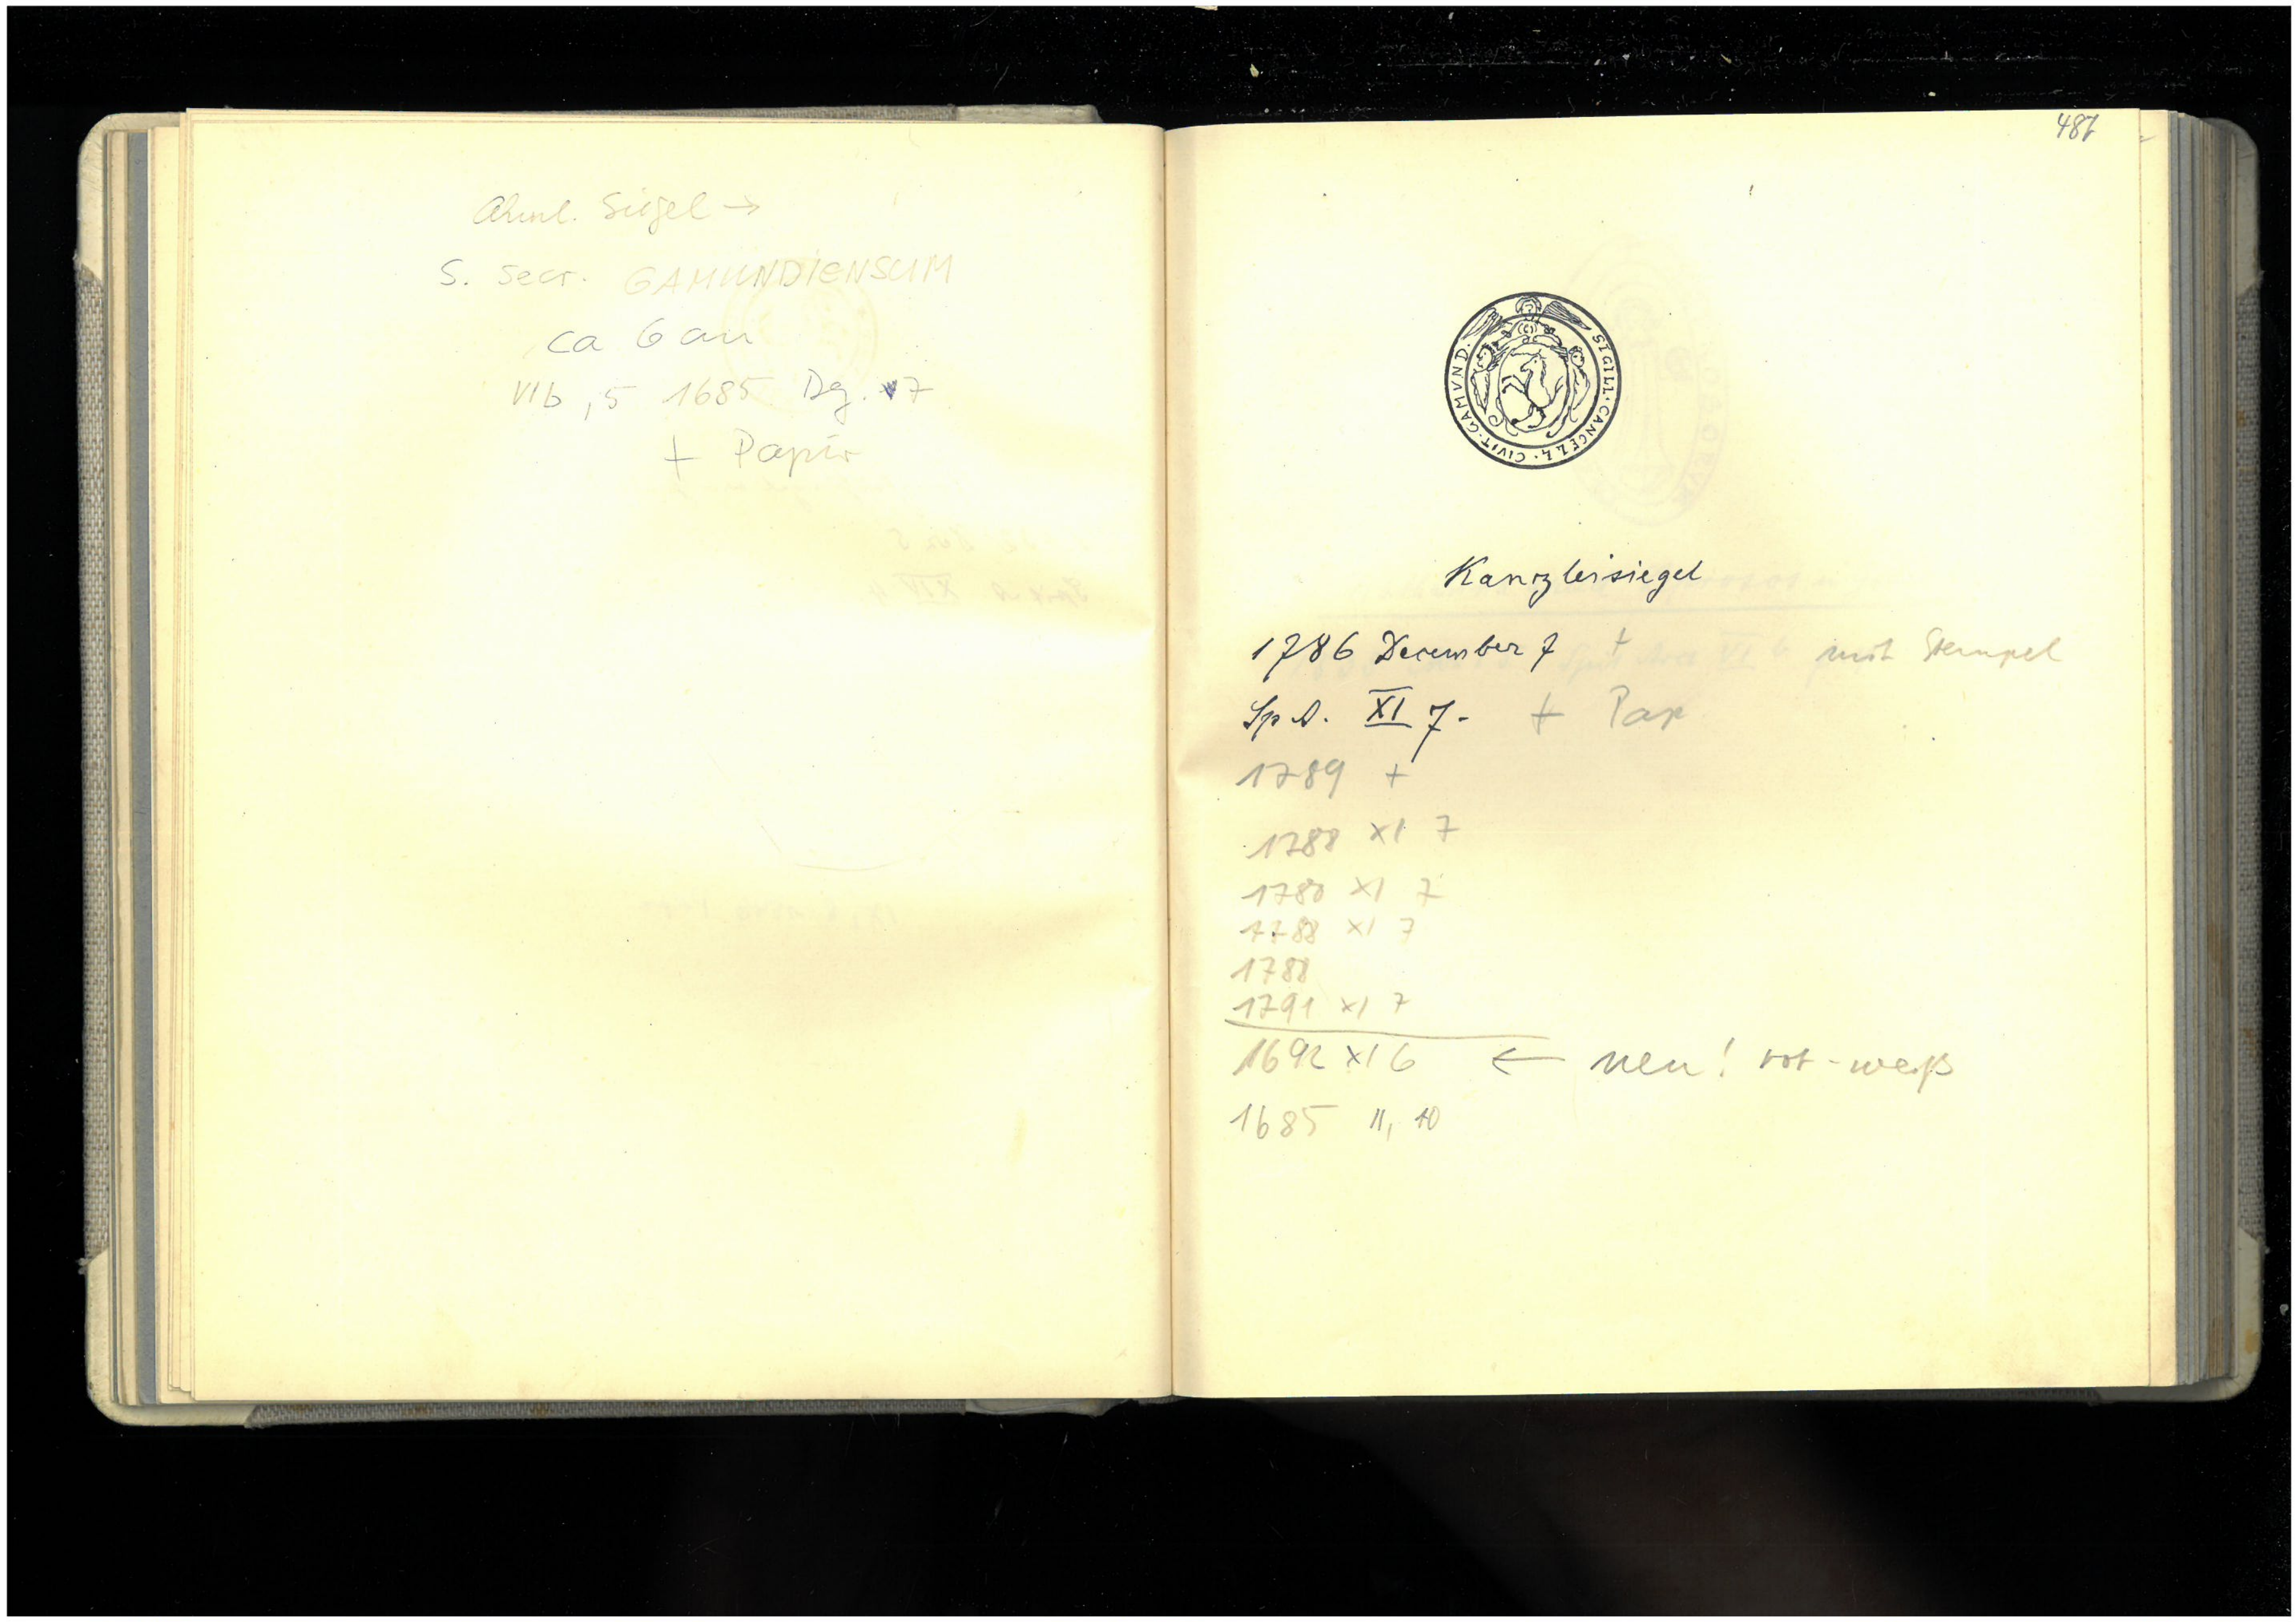 Ähnl. Siegel →
S. Secr. GAMUNDIENSUM
ca 6 cm
VIb, 5 1685 Dez. 17
+ Papier
487
SIGILL · CANCELL · CIVIT · GAMVND ·
Kanzleisiegel
1786 December 7 + mit Stempel
Sp A. XI 7. + Pap
1789 +
1788 XI 7
1780 XI 7
1788 XI 7
1788
1791 XI 7
1692 XI 6 ← neu! rot-weiß
1685 II, 10